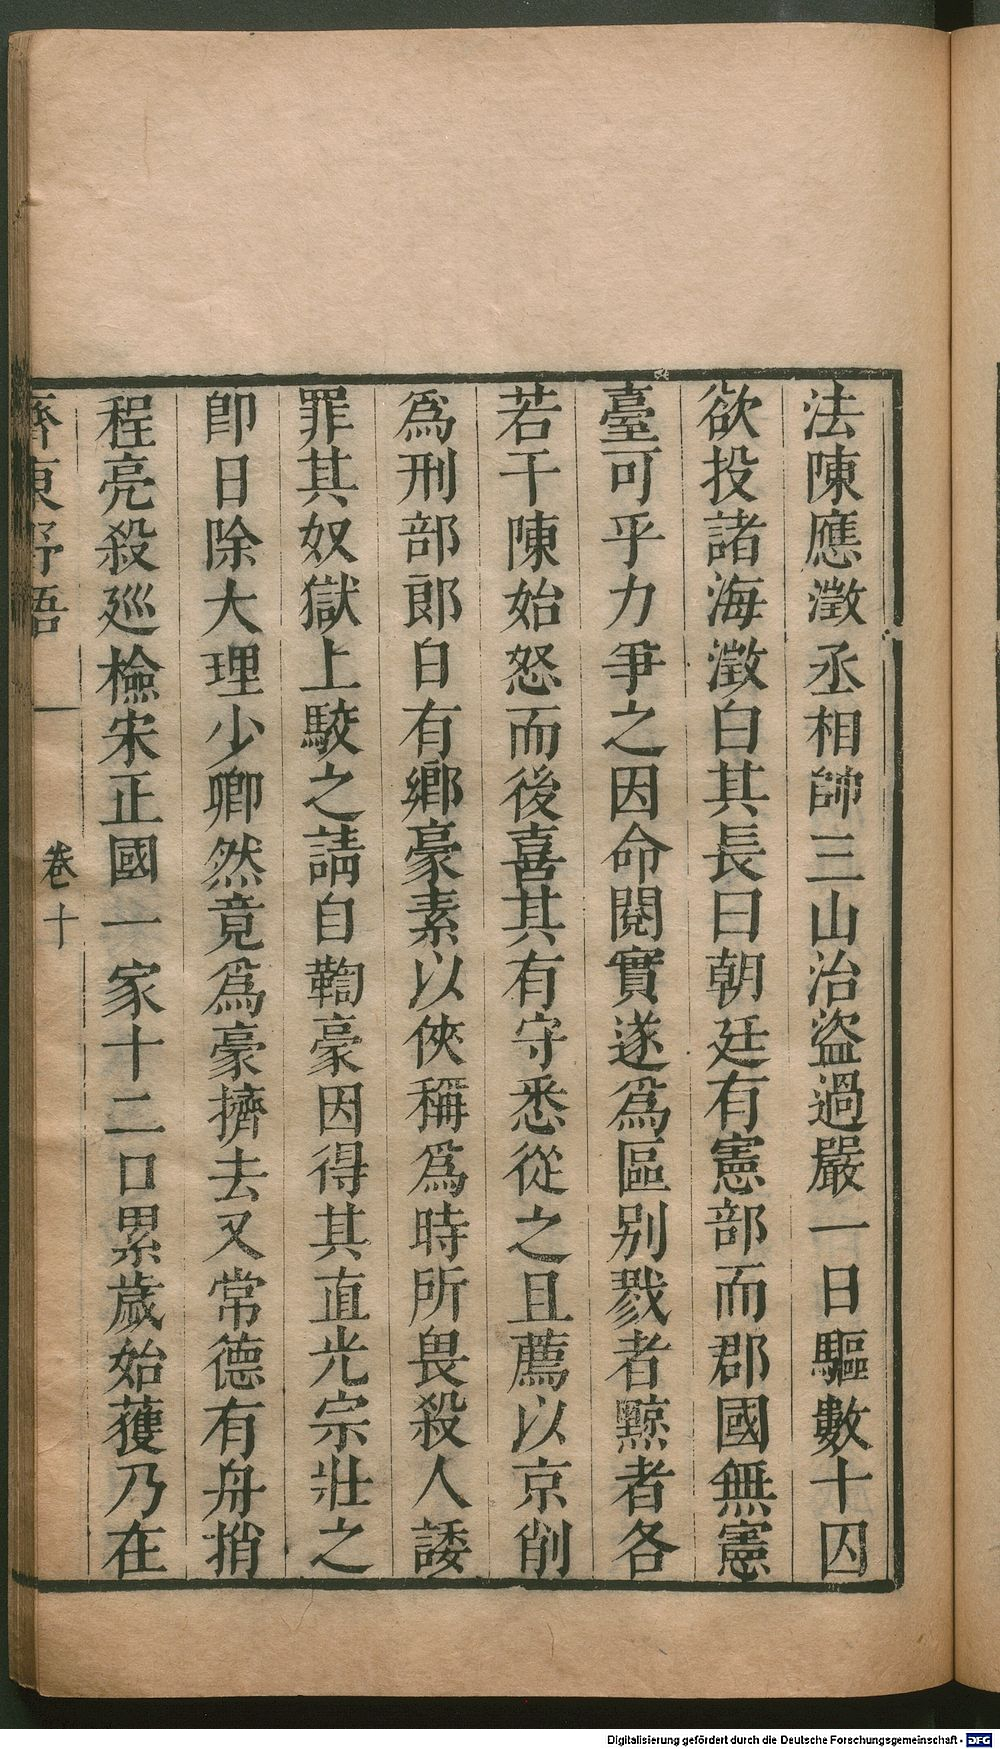 法陳應澂丞相帥三山治盜過嚴一日驅數十囚
欲投諸海澂白其長曰朝廷有憲部而郡國無憲
臺可乎力爭之因命閱實遂爲區別戮者黥者各
若干陳始怒而後喜其有守悉從之且薦以京削
爲刑部郎日有鄉豪素以俠稱爲時所畏殺人諉
罪其奴獄上駮之請自鞫豪因得其直光宗壯之
卽日除大理少卿然竟爲豪擠去又常德有舟捎
程亮殺巡檢宋正國一家十二口累歲始獲乃在
齊東野語
卷十
Digitalisierung gefördert durch die Deutsche Forschungsgemeinschaft - DFG